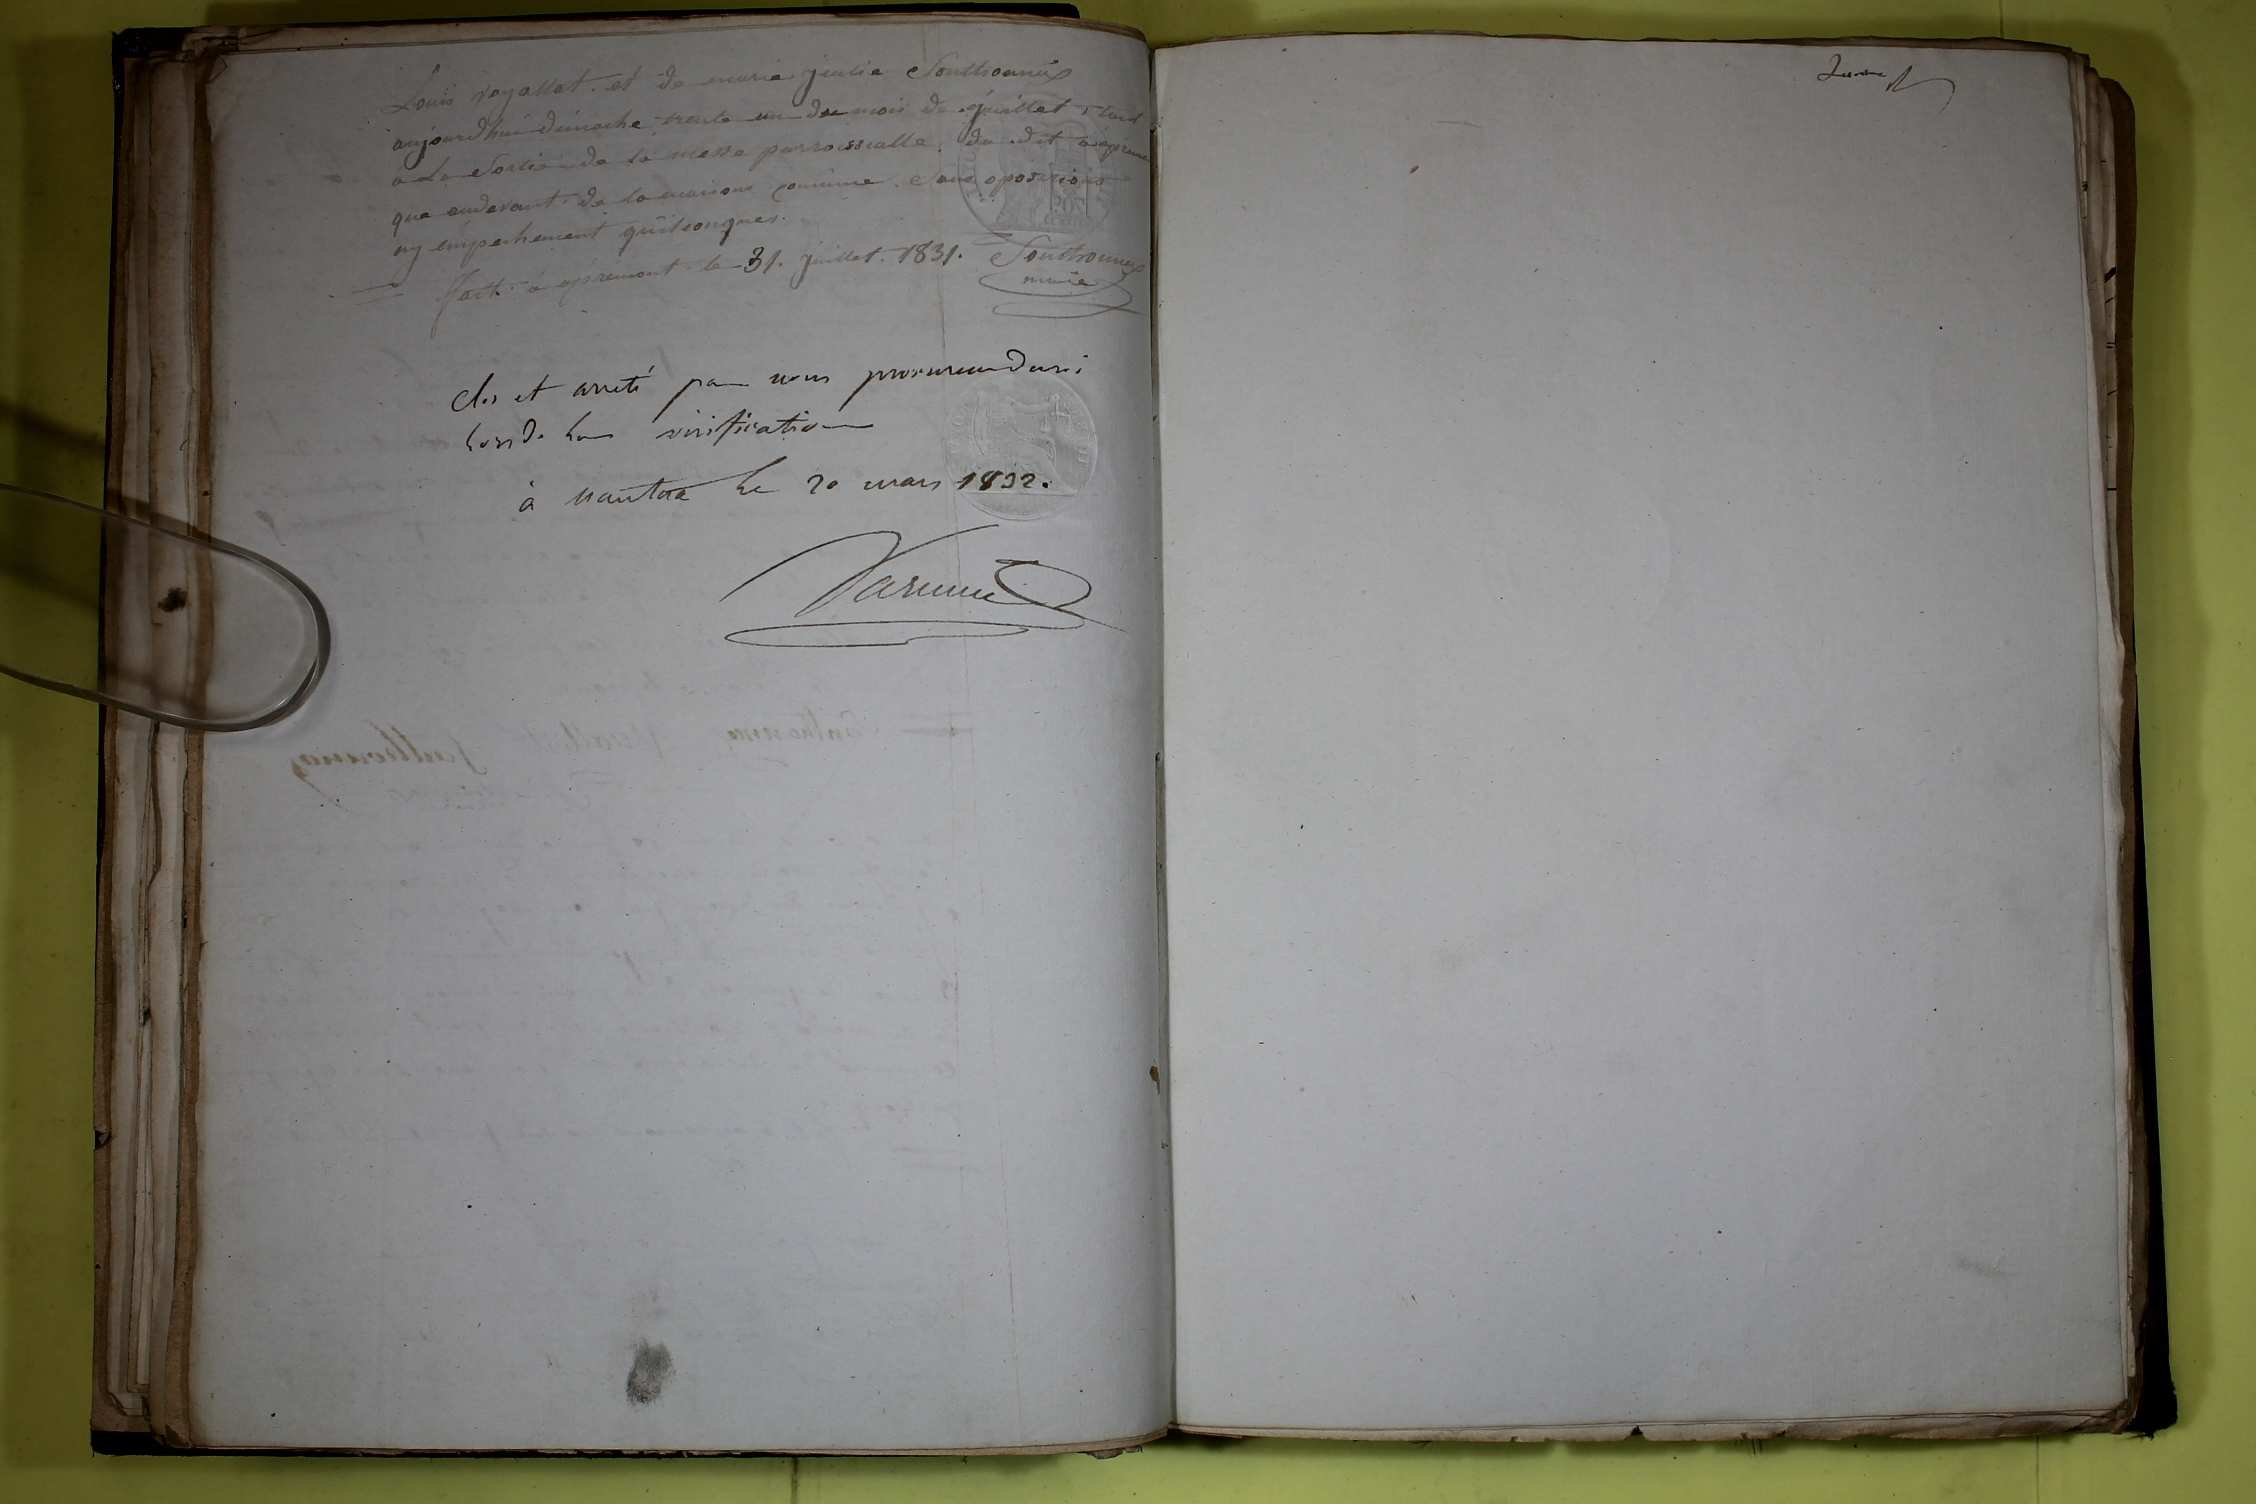 Louis royallat. et de marie julie Southonnax
aujourdhui dimache trente un du mois de juillet
a La Sortie de la messe parroissialle. du dit
que audevant de la maison comune. Sans oposition
ny empechement quelconques.
Fait à apremont le 31. juillet. 1831. Southonnax
maire
clos et arreté par nous procureur du roi
lors de la vérification
à Nantua le 20 mars 1832.